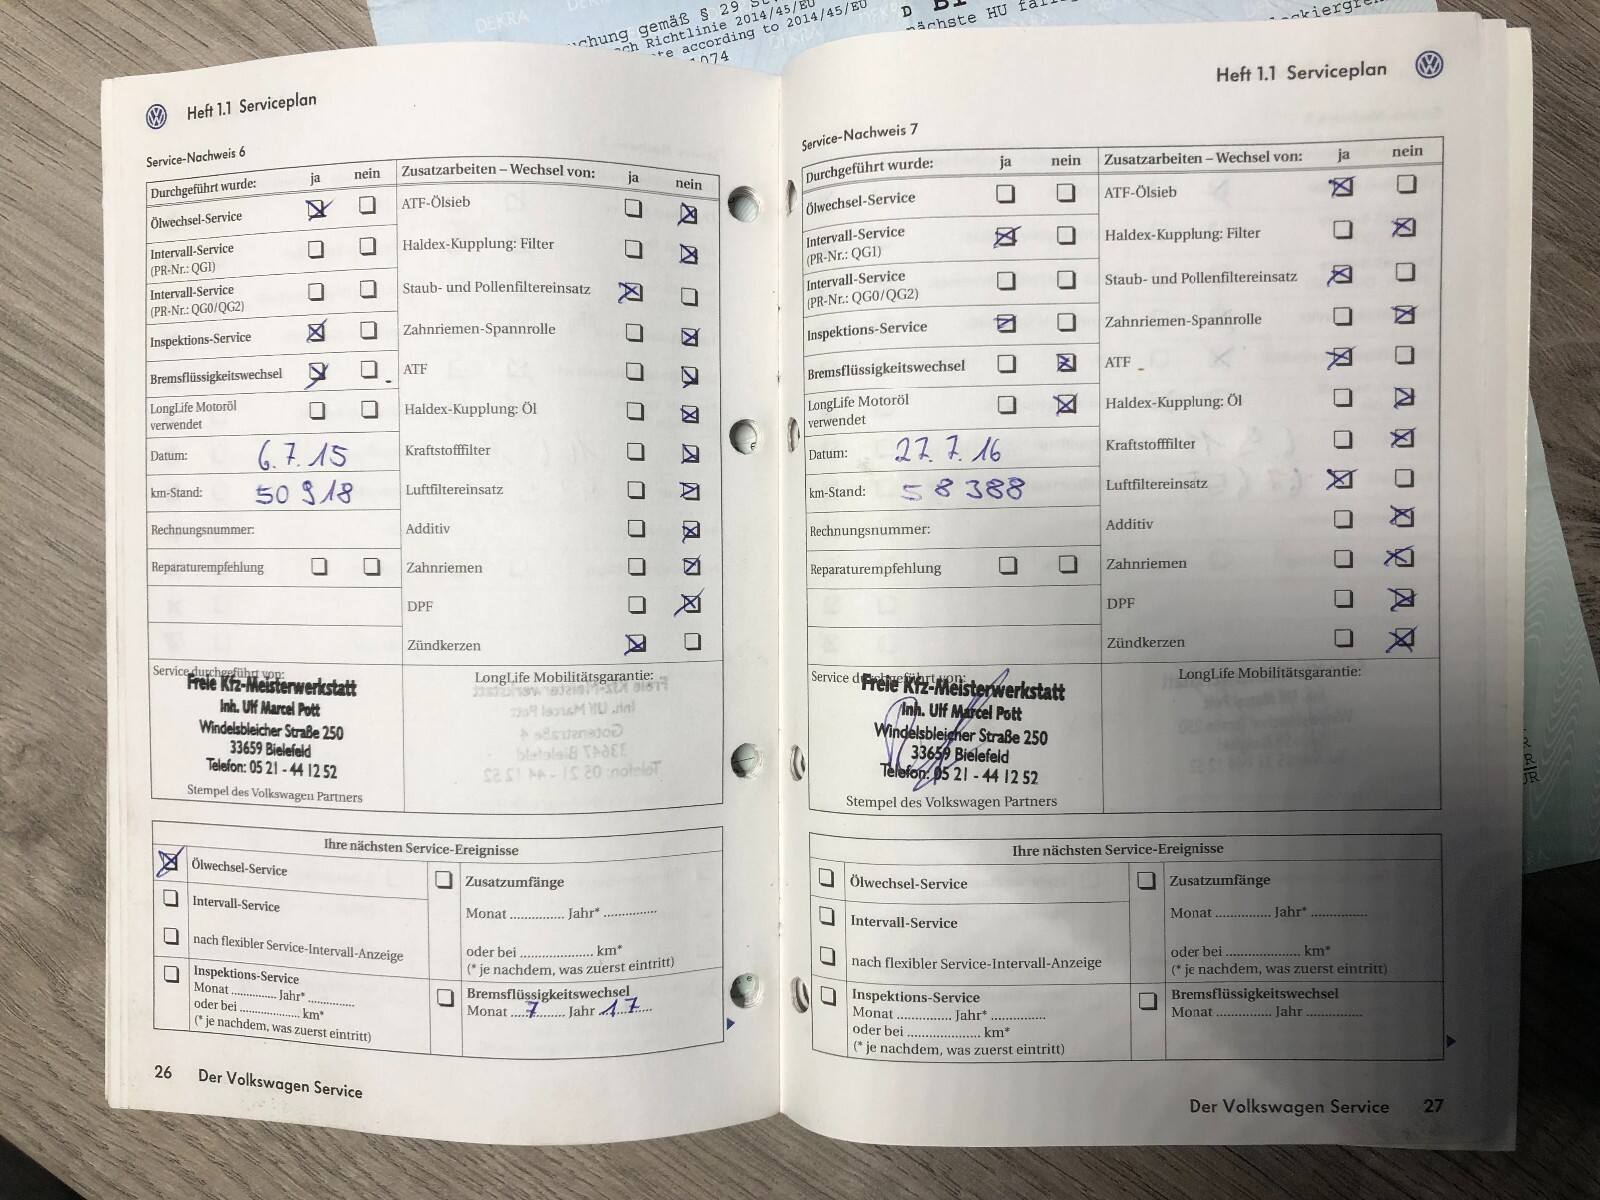 DEKRA
chung gemäß § 29
ch Richtlinie 2014/45/EU
te according to 2014/45/EU
1074
D
nächste HU
Heft 1.1 Serviceplan
Service-Nachweis 6
Durchgeführt wurde: ja nein
Ölwechsel-Service
Intervall-Service
(PR-Nr.: QG1)
Intervall-Service
(PR-Nr.: QG0/QG2)
Inspektions-Service
Bremsflüssigkeitswechsel
LongLife Motoröl
verwendet
Datum: 6.7.15
km-Stand: 50 918
Rechnungsnummer:
Reparaturempfehlung
Zusatzarbeiten – Wechsel von: ja nein
ATF-Ölsieb
Haldex-Kupplung: Filter
Staub- und Pollenfiltereinsatz
Zahnriemen-Spannrolle
ATF
Haldex-Kupplung: Öl
Kraftstofffilter
Luftfiltereinsatz
Additiv
Zahnriemen
DPF
Zündkerzen
Service durchgeführt von:
Freie Kfz-Meisterwerkstatt
Inh. Ulf Marcel Pott
Windelsbleicher Straße 250
33659 Bielefeld
Telefon: 05 21 - 44 12 52
Stempel des Volkswagen Partners
LongLife Mobilitätsgarantie:
Ihre nächsten Service-Ereignisse
Ölwechsel-Service
Intervall-Service
nach flexibler Service-Intervall-Anzeige
Inspektions-Service
Monat .............. Jahr* ..............
oder bei .................... km*
(* je nachdem, was zuerst eintritt)
Zusatzumfänge
Monat .............. Jahr* ..............
oder bei .................... km*
(* je nachdem, was zuerst eintritt)
Bremsflüssigkeitswechsel
Monat 7 Jahr 17
26 Der Volkswagen Service
Heft 1.1 Serviceplan
Service-Nachweis 7
Durchgeführt wurde: ja nein
Ölwechsel-Service
Intervall-Service
(PR-Nr.: QG1)
Intervall-Service
(PR-Nr.: QG0/QG2)
Inspektions-Service
Bremsflüssigkeitswechsel
LongLife Motoröl
verwendet
Datum: 27.7.16
km-Stand: 58 388
Rechnungsnummer:
Reparaturempfehlung
Zusatzarbeiten – Wechsel von: ja nein
ATF-Ölsieb
Haldex-Kupplung: Filter
Staub- und Pollenfiltereinsatz
Zahnriemen-Spannrolle
ATF
Haldex-Kupplung: Öl
Kraftstofffilter
Luftfiltereinsatz
Additiv
Zahnriemen
DPF
Zündkerzen
Service durchgeführt von:
Freie Kfz-Meisterwerkstatt
Inh. Ulf Marcel Pott
Windelsbleicher Straße 250
33659 Bielefeld
Telefon: 05 21 - 44 12 52
Stempel des Volkswagen Partners
LongLife Mobilitätsgarantie:
Ihre nächsten Service-Ereignisse
Ölwechsel-Service
Intervall-Service
nach flexibler Service-Intervall-Anzeige
Inspektions-Service
Monat .............. Jahr* ..............
oder bei .................... km*
(* je nachdem, was zuerst eintritt)
Zusatzumfänge
Monat .............. Jahr* ..............
oder bei .................... km*
(* je nachdem, was zuerst eintritt)
Bremsflüssigkeitswechsel
Monat .............. Jahr ..............
Der Volkswagen Service 27